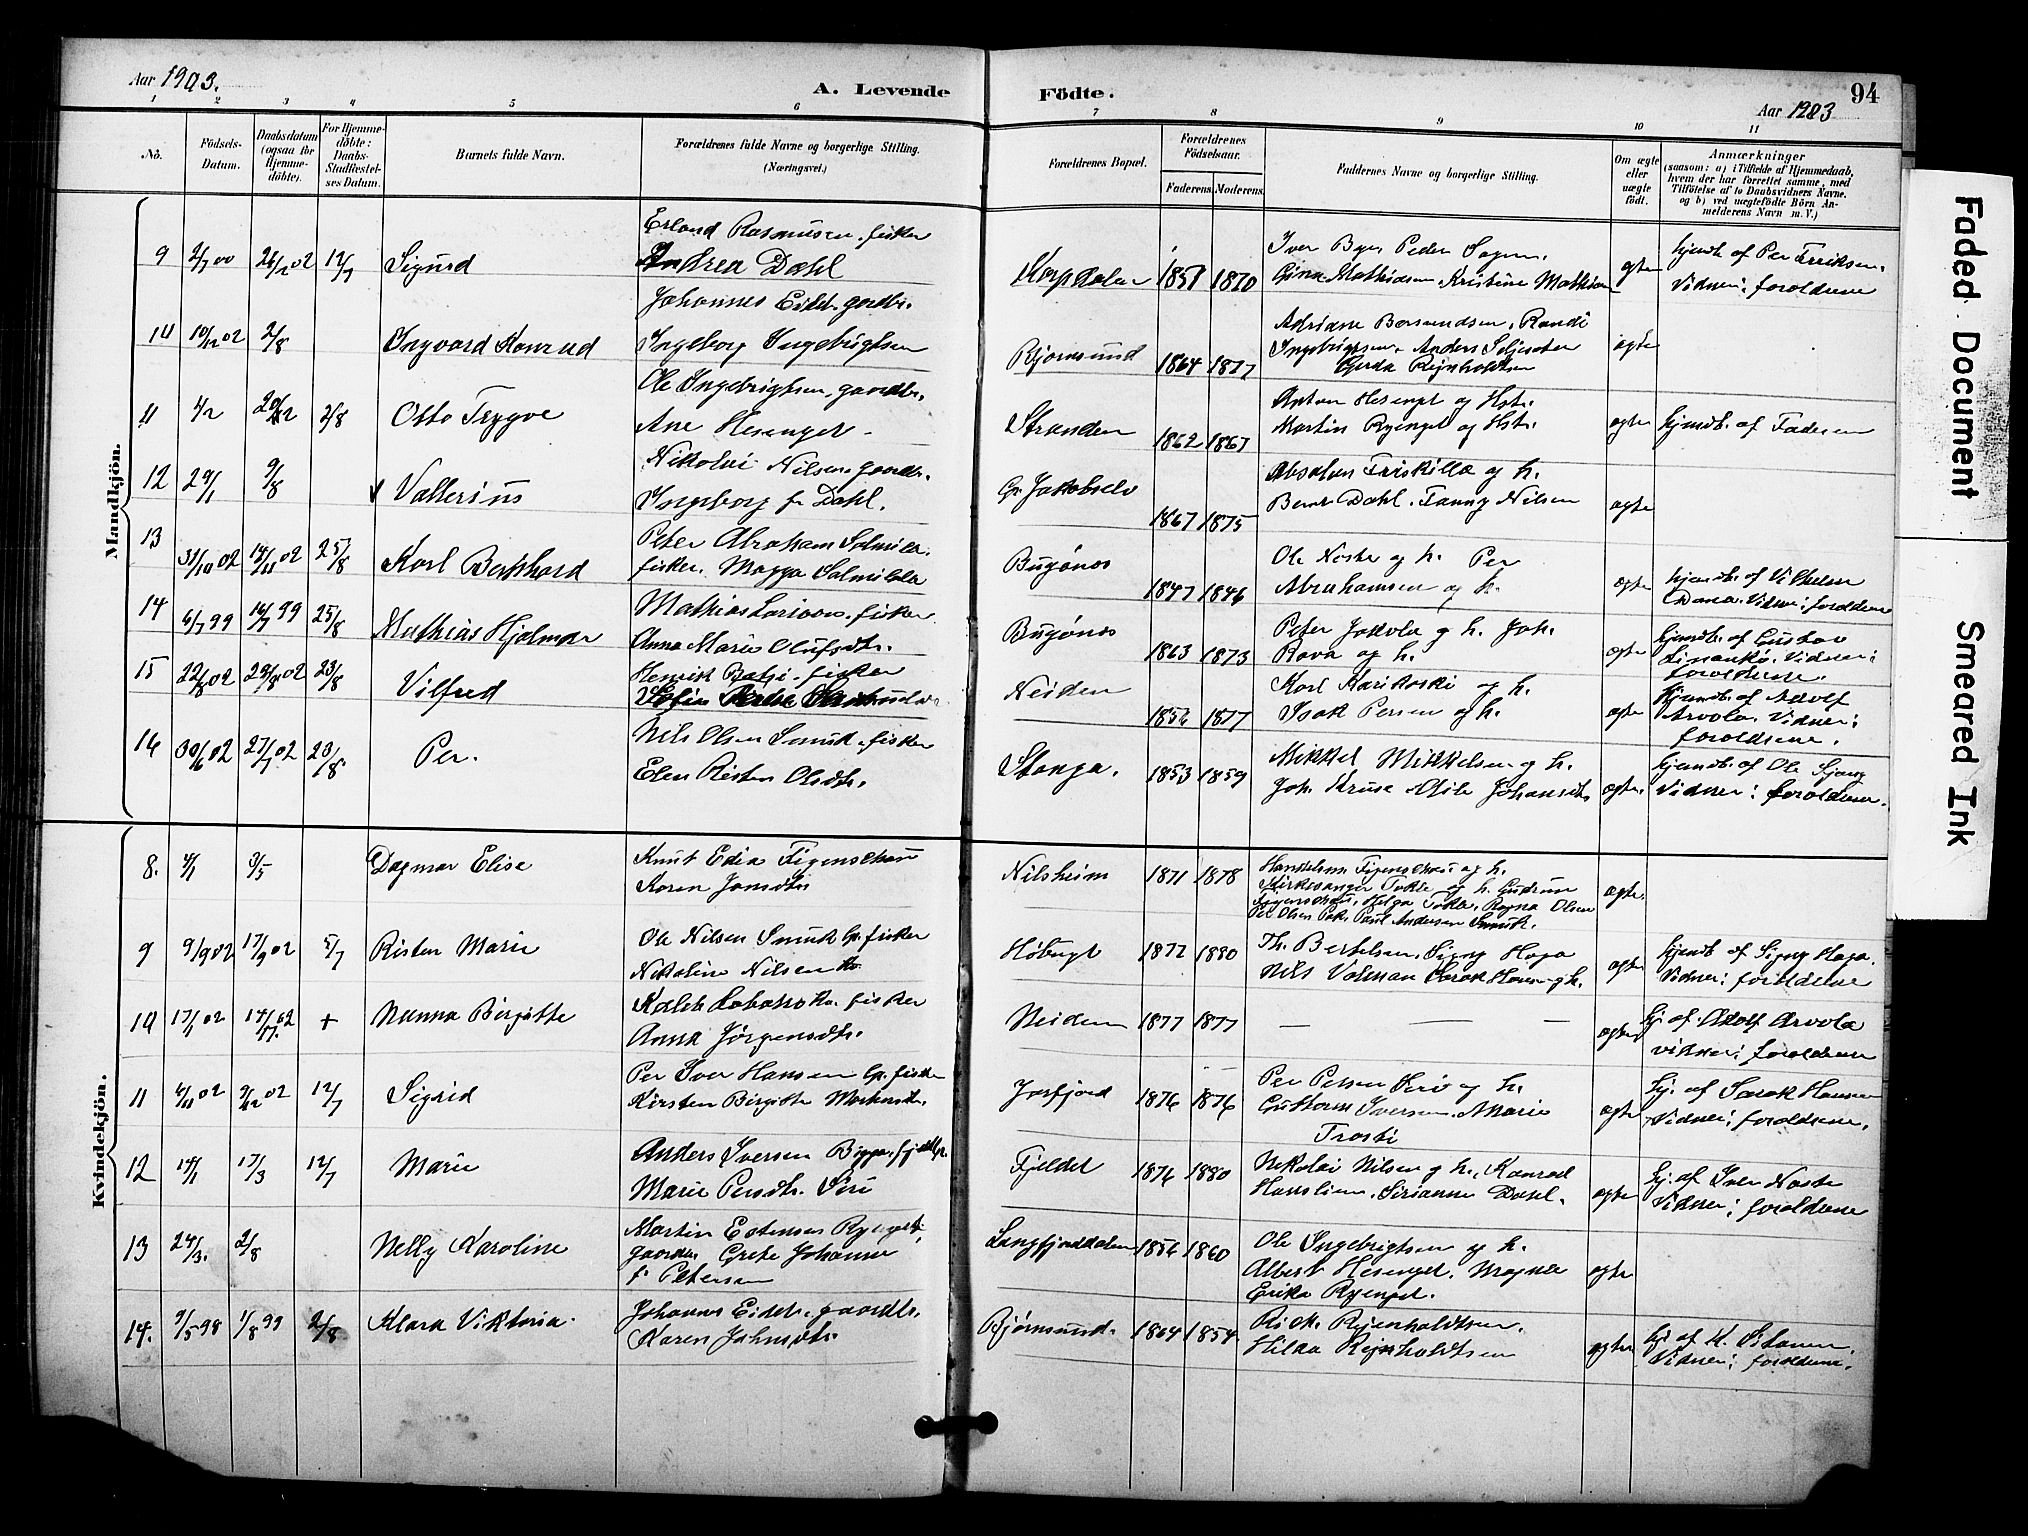 Aar 1903.
A. Levende Födte.
Aar 1903
94
1 2 3 4 5 6 7 8 9 10 11
No.
Födsels-Datum.
Daabsdatum (ogsaa for Hjemme-döbte).
For Hjemme-döbte: Daabs-Stadfæstel-ses Datum.
Barnets fulde Navn.
Forældrenes fulde Navne og borgerlige Stilling. (Næringsvei.)
Forældrenes Bopæl.
Forældrenes Födselsaar.
Faderens. Moderens.
Faddernes Navne og borgerlige Stilling.
Om ægte eller uægte födt.
Anmærkninger
(saasom: a) i Tilfælde af Hjemmedaab, hvem der har forrettet samme, med Tilföielse af to Daabsvidners Navne. og b) ved uægtefödte Börn An-melderens Navn m. V.)
Mandkjön.
9 2/7 00 12/7 Sigurd
Erland Rasmussen. fisker
Andrea Dahl
1851 1870
Iver Bye, Peder
Gina Mathisen, Kristine Mathisen
ægte
hjemdt. af Per Erriksen.
Vidner: forældrene
10 10/12 02 2/8 Ingvard Konrad
Johannes Eidet. gaardbr.
Ingeborg Ingebrigtsen
1864 1877
Randi
Ingebrigtsen, Anders
Gerda Rejnholdtsen
ægte
11 4/2 2/8 Otto Trygve
Ole Ingebrigtsen. gaardbr.
Ane Hesenget
Stranden 1862 1867
Anton Hesenget og Hstr.
Martin Ryenget og Hstr.
ægte
hjemdt. af Faderen
12 29/1 9/8 Vallerius
Nikolai Nilsen. gaardbr.
Ingeborg f. Dahl.
Gr. Jakobselv 1867 1875
Absalon og h.
Dahl. Fanny Nilsen
ægte
13 31/10 02 14/11 02 25/8 Karl Bernhard
Peter Abraham
fisker. Magga
Bugönes 1847 1846
Ole Neste og h. Per
Abrahamsen og h.
ægte
hjemdt. af Vilhelm
Vidner: forældrene
14 6/7 99 16/7 99 25/8 Mathias Hjalmar
Mathias fisker
Anna Marie Olufsdtr.
Bugönes 1863 1873
Peter Jokela og h. Joh.
Rova og h.
ægte
hjemdt. af Gustav
Vidner:
forældrene.
15 22/8 02 29/8 02 23/8 Vilfred
Henrik fisker
Sofie
Neiden 1856 1877
Karl Karikoski og h.
Isak Persen og h.
ægte
hjemdt. af Adolf
Arvola. Vidner:
forældrene.
16 30/6 02 27/7 02 23/8. Per.
Nils Olsen Smuk. fisker
Elen Risten Olsdtr.
Stonga. 1853 1859
Mikkel Mikkelsen og h.
Joh. Kruse Johansdtr
ægte.
hjemdt. af Ole
Vidner: forældrene.
Kvindekjön.
8. 4/1 3/5 Dagmar Elise
Knut Edia Figenschau
Karen Jonsdtr
Nilsheim 1871 1878
Handelsm. Figenschau og h.
Kirkesanger Tokle og h. Gudrun
Figenschau, Helga Tokle, Ragna Olsen
Per Olsen Paul Andersen Smuk.
ægte.
9 9/9 02 17/9 02 5/7 Risten Marie
Ole Nilsen Smuk lp. fisker
Nikoline Nilsen
Höbugt 1872 1880
Th. Bertelsen, Signy Haga
Nils Sarak Hansen og h.
ægte
hjemdt. af Signy Haga.
Vidner: forældrene
10 17/1 02 + Nanna Birgitte
Kaleb fisker
Anna Jörgensdtr.
Neiden 1877 1877
— — —
ægte
hj. af Adolf Arvola
vidner: forældrene
11 4/11 02 9/12 02 12/7 Sigrid
Per Iver Hansen lp. fisker
Kirsten Birgitte
Jarfjord 1876 1876
Per Persen Siri og h.
Guttorm Iversen. Marie
Trosti
ægte
hj. af Sarak Hansen
Vidner: forældrene.
12 14/1 17/3 12/7 Marie
Anders Iversen
Marie Persdtr. Siri
Fjeldet 1876 1880
Nikolai Nilsen og h. Konrad
Dahl.
ægte
hj. af Iver Neste
Vidner: forældrene
13 24/3. 2/8 Nelly Karoline
Martin Estensen Ryenget,
gaardbr. Grete Johanne
f. Petersen
Langfjorddalen 1856 1860
Ole Ingebrigtsen og h.
Albert Hesenget. Magna
Erika Ryenget.
ægte
14. 9/5 98 1/8 99 2/8 Klara Viktoria.
Johannes Eidet. gaardbr.
Karen Johnsdtr.
Bjørnsund. 1864 1854
Rick. Rejenholdtsen.
Hilda Rejnholdtsen
ægte
hj. af K.
Vidner: forældrene.
Faded Document
Smeared Ink